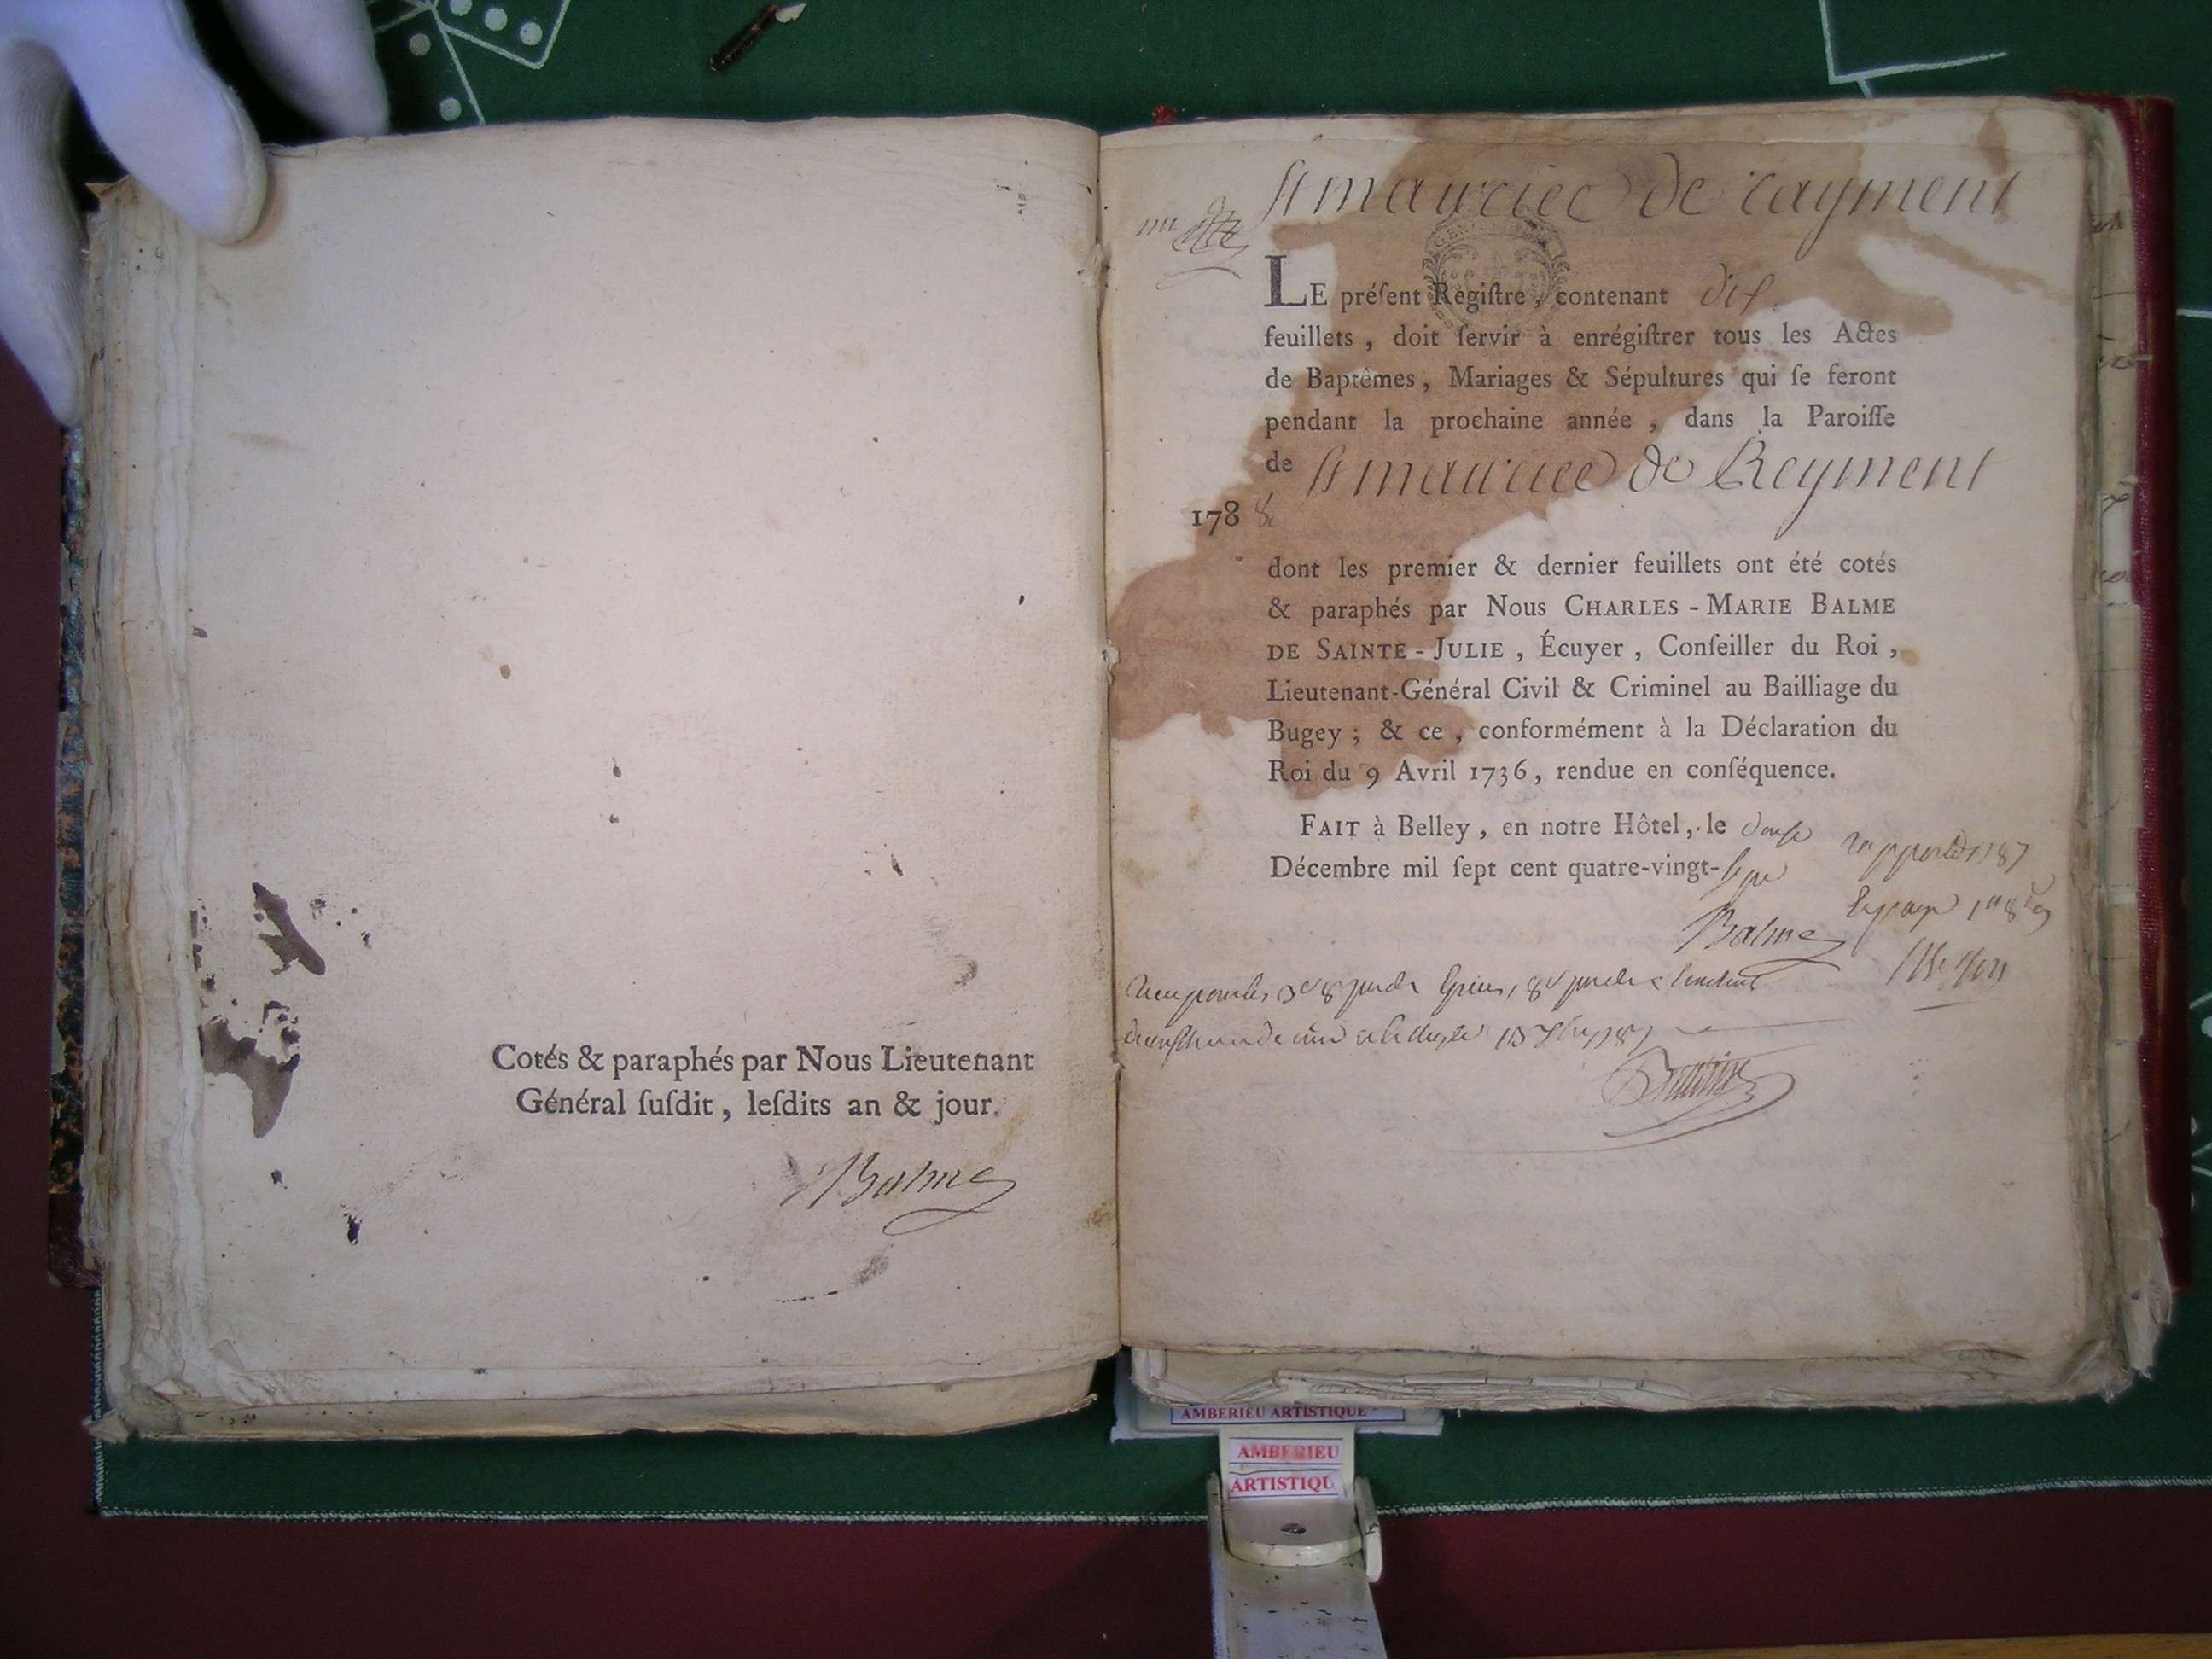 Cotés & paraphés par Nous Lieutenant
Général ſuſdit, leſdits an & jour.
Balme
St mauricee de rayment
LE préſent Regiſtre, contenant dix
feuillets, doit ſervir à enrégiſtrer tous les Actes
de Baptêmes, Mariages & Sépultures qui ſe feront
pendant la prochaine année, dans la Paroiſſe
de St mauricee de Reyment
1788
dont les premier & dernier feuillets ont été cotés
& paraphés par Nous CHARLES-MARIE BALME
DE SAINTE-JULIE, Écuyer, Conſeiller du Roi,
Lieutenant-Général Civil & Criminel au Bailliage du
Bugey; & ce, conformément à la Déclaration du
Roi du 9 Avril 1736, rendue en conſéquence.
FAIT à Belley, en notre Hôtel, le douſe
Décembre mil ſept cent quatre-vingt-ſept
Balme
AMBERIEU ARTISTIQUE
AMBERIEU
ARTISTIQU